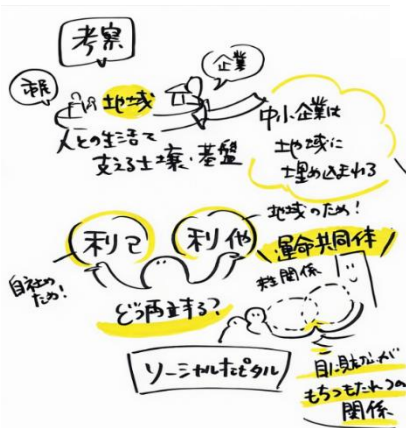 考察
住民
地域
企業
人との生活で
支える土壌・基盤
中小企業は
地域に
埋め込まれる
利己
利他
地域のため！
運命共同体
自社の
ため！
どう両立する？
ソーシャルキャピタル
目に見えないが
もちつもたれつの
関係